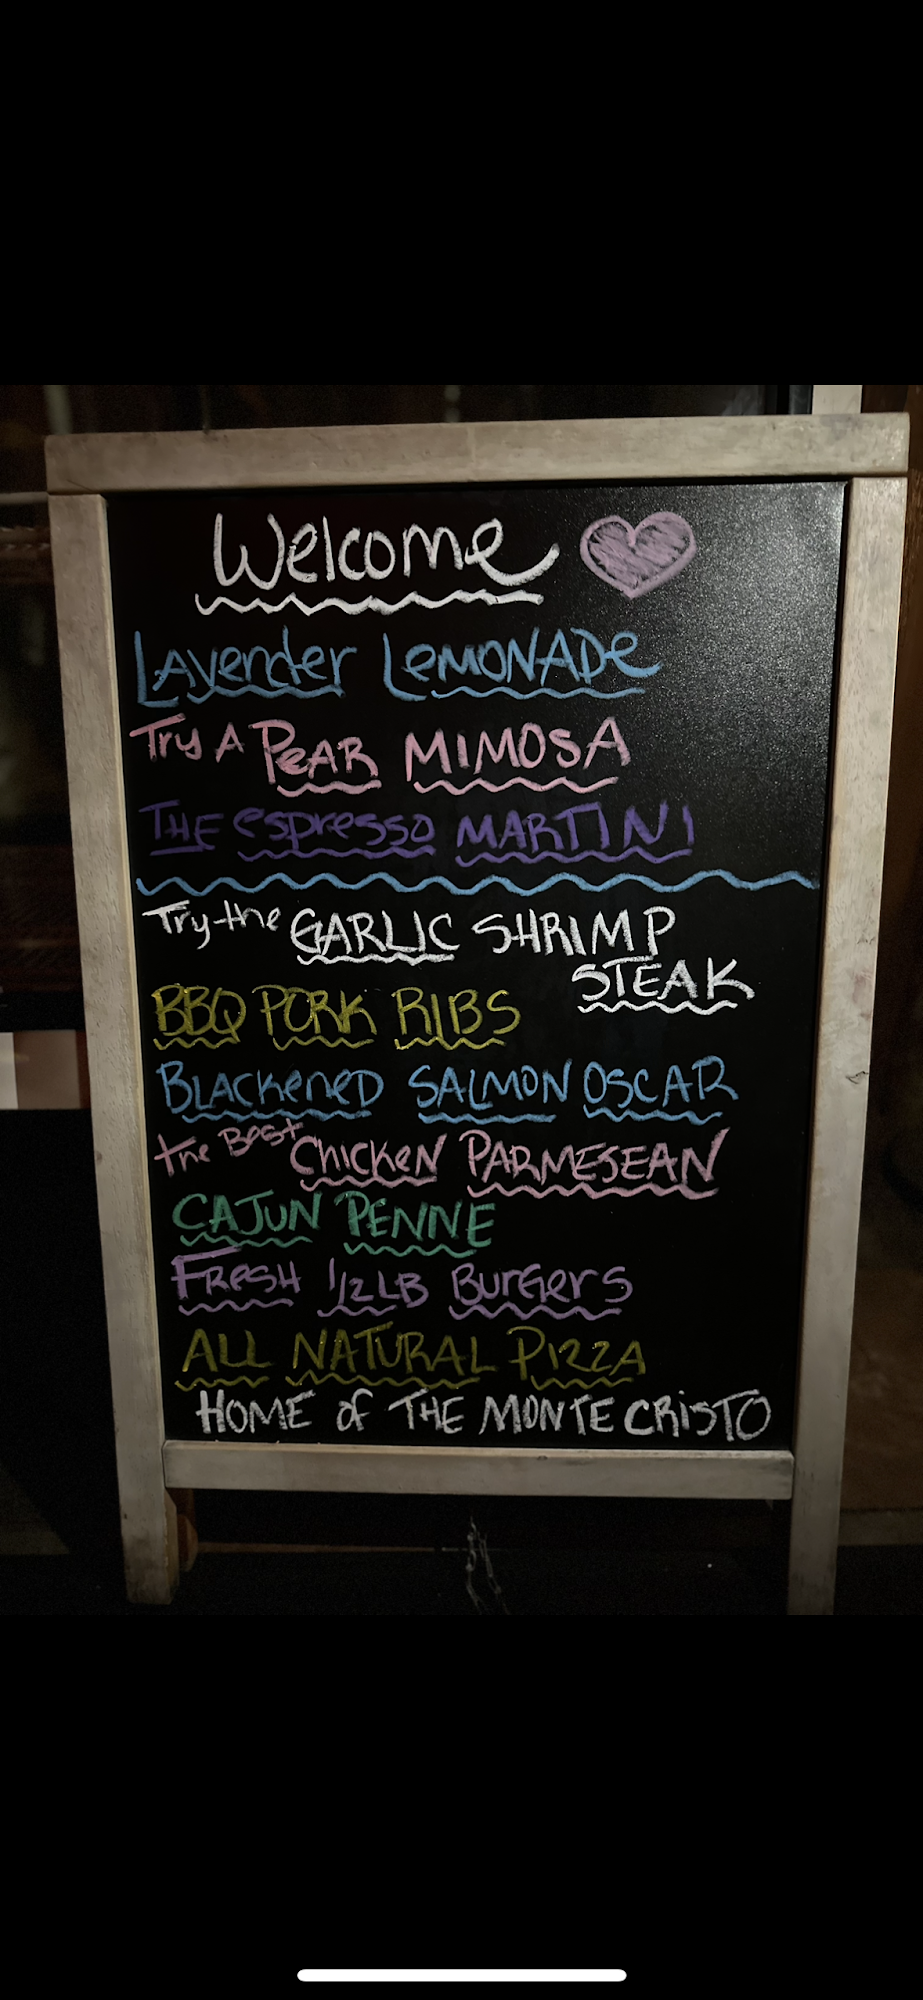 Welcome
Lavender LEMONADE
Try A PEAR MIMOSA
THE espresso MARTINI
Try the GARLIC SHRIMP
STEAK
BBQ PORK RIBS
BLACKENED SALMON OSCAR
the Best CHICKEN PARMESEAN
CAJUN PENNE
FRESH 1/2 LB BURGERS
ALL NATURAL PIZZA
HOME of THE MONTE CRISTO